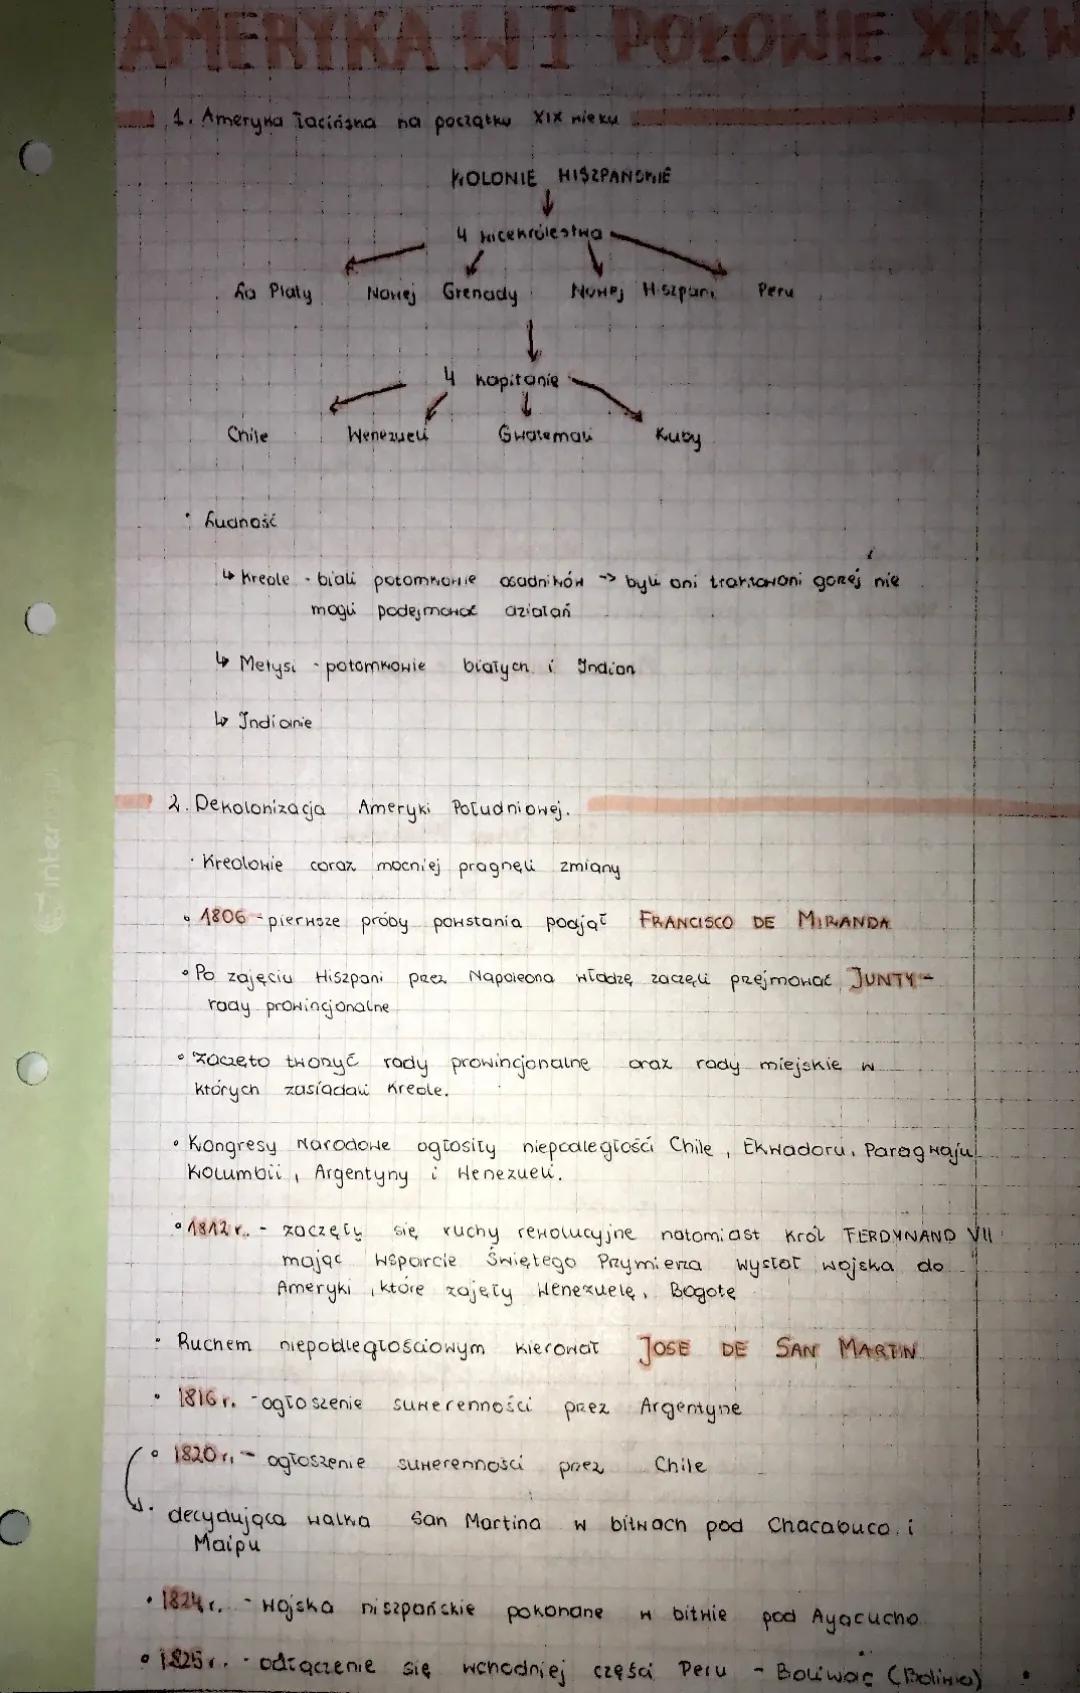 AMERYKA W I POŁOWIE XIX W
1. Ameryka Łacińska na początku XIX wieku
KOLONIE HISZPAŃSKIE
4 wicekrólestwa
La Platy Nowej Grenady Nowej Hiszpani Peru
4 kapitanie
Chile Wenezueli Gwatemali Kuby
• Ludność
↳ Kreole - biali potomkowie osadników -> byli oni traktowani gorzej nie
mogli podejmować działań
↳ Metysi - potomkowie białych i Indian
↳ Indianie
2. Dekolonizacja Ameryki Południowej.
• Kreolowie coraz mocniej pragnęli zmiany
• 1806 - pierwsze próby powstania podjął FRANCISCO DE MIRANDA
• Po zajęciu Hiszpani przez Napoleona władzę zaczęli przejmować JUNTY -
rady prowincjonalne
• Zaczęto tworzyć rady prowincjonalne oraz rady miejskie w
których zasiadali Kreole.
• Kongresy Narodowe ogłosiły niepodległości Chile, Ekwadoru, Paragwaju
Kolumbii, Argentyny i Wenezueli.
• 1812 r. - zaczęły się ruchy rewolucyjne natomiast Król FERDYNAND VII
mając wsparcie Świętego Przymierza wysłał wojska do
Ameryki, które zajęły Wenezuelę, Bogotę
• Ruchem niepodległościowym kierował JOSE DE SAN MARTIN
• 1816 r. - ogłoszenie suwerenności przez Argentynę
• 1820 r. - ogłoszenie suwerenności przez Chile
• decydująca walka San Martina w bitwach pod Chacabuco i
Maipu
• 1824 r. - wojska hiszpańskie pokonane w bitwie pod Ayacucho
• 1825 r. - odłączenie się wchodniej części Peru - Boliwar (Boliwia)
inter